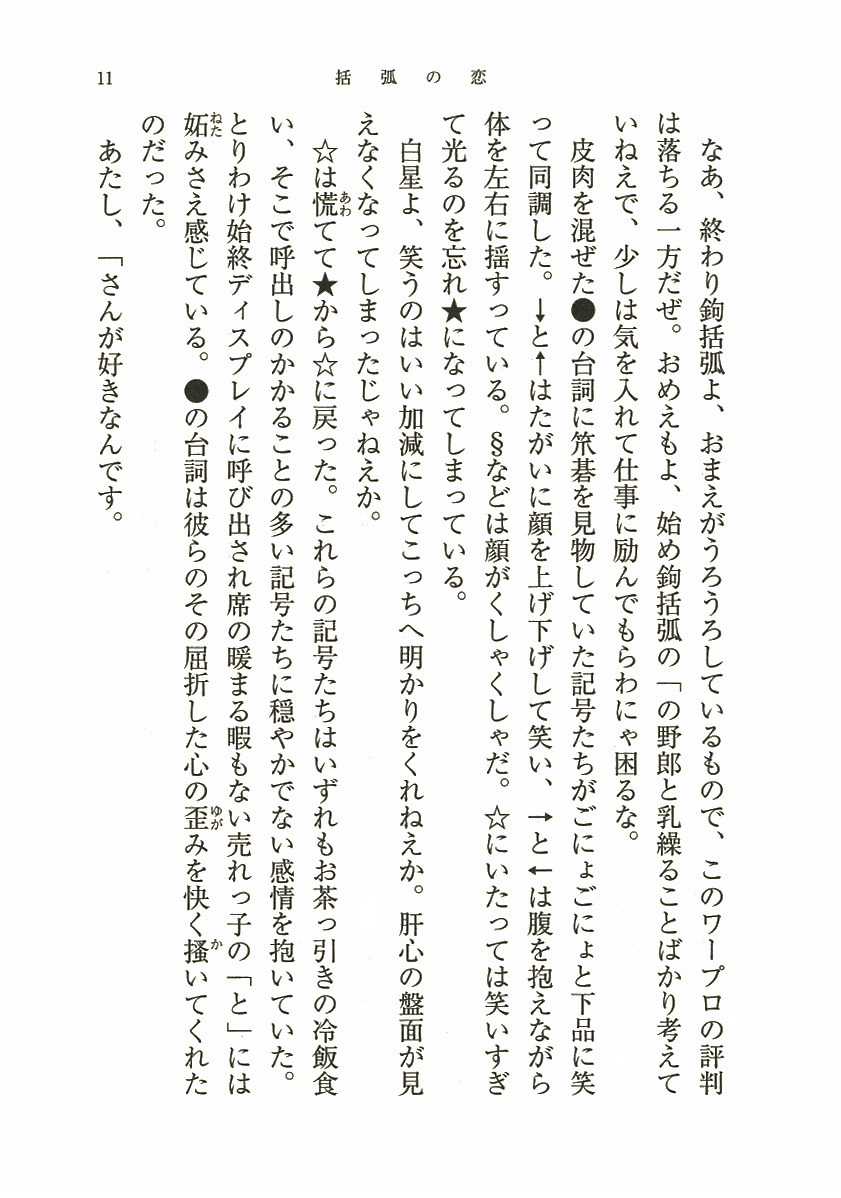 11
括弧の恋
なあ、終わり鉤括弧よ、おまえがうろうろしているもので、このワープロの評判
は落ちる一方だぜ。おめえもよ、始め鉤括弧の「の野郎と乳繰ることばかり考えて
いねえで、少しは気を入れて仕事に励んでもらわにゃ困るな。
皮肉を混ぜた●の台詞に笊碁を見物していた記号たちがごにょごにょと下品に笑
って同調した。↓と↑はたがいに顔を上げ下げして笑い、→と←は腹を抱えながら
体を左右に揺すっている。§などは顔がくしゃくしゃだ。☆にいたっては笑いすぎ
て光るのを忘れ★になってしまっている。
白星よ、笑うのはいい加減にしてこっちへ明かりをくれねえか。肝心の盤面が見
えなくなってしまったじゃねえか。
☆は慌てて★から☆に戻った。これらの記号たちはいずれもお茶っ引きの冷飯食
い、そこで呼出しのかかることの多い記号たちに穏やかでない感情を抱いていた。
とりわけ始終ディスプレイに呼び出され席の暖まる暇もない売れっ子の「と」には
妬みさえ感じている。●の台詞は彼らのその屈折した心の歪みを快く掻いてくれた
のだった。
あたし、「さんが好きなんです。